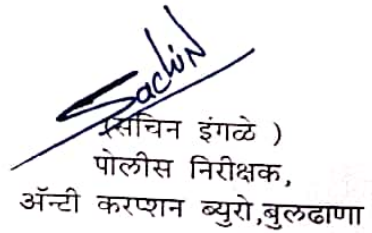 Sachin
(सचिन इंगळे )
पोलीस निरीक्षक,
ॲन्टी करप्शन ब्युरो,बुलढाणा